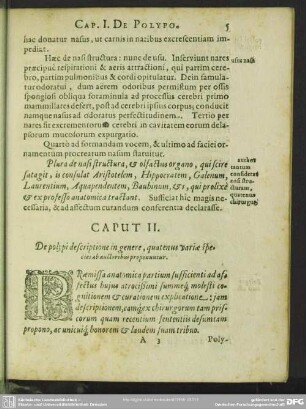 CAP. I. DE POLYPO. 5
hac donatur nasus, ut carnis in naribus excrescentiam im-
pediat.
Hæc de nasi structura: nunc de usu. Inserviunt nares
præcipuè respirationi & aeris attractioni, qui partim cere-
bro, partim pulmonibus & cordi opitulatur. Dein famula-
tur odoratui, dum aërem odoribus permistum per ossis
spongiosi obliqua foraminula ad processus cerebri primo
mammillares defert, post ad cerebri ipsius corpus; conducit
namque nasus ad odoratus perfectitudinem. Tertio per
nares fit excrementorum cerebri in cavitatem eorum delap-
sorum mucosorum expurgatio.
Quartò ad formandam vocem, & ultimo ad faciei or-
namentum procreatum nasum statuitur.
Plura de nasi structura, & olfactus organo, qui scire
satagit, is consulat Aristotelem, Hippocratem, Galenum,
Laurentium, Aquapendentem, Bauhinum, &c, qui prolixè
& ex professo anatomica tractant. Sufficiat hic magis ne-
cessaria, & ad affectum curandum conferentia declarasse.
CAPUT II.
De polypi descriptione in genere, quatenus variæ spe-
cies ab auctoribus proponuntur.
PRæmissa anatomica partium sufficienti ad af-
fectus hujus atrocissimi summeq; molesti co-
gnitionem & curationem explicatione: jam
descriptionem, camq; ex chirurgorum tam pris-
corum quam recentium sententiis desumtam
propono, ac unicuiq; honorem & laudem suam tribuo.
A 3 Poly-